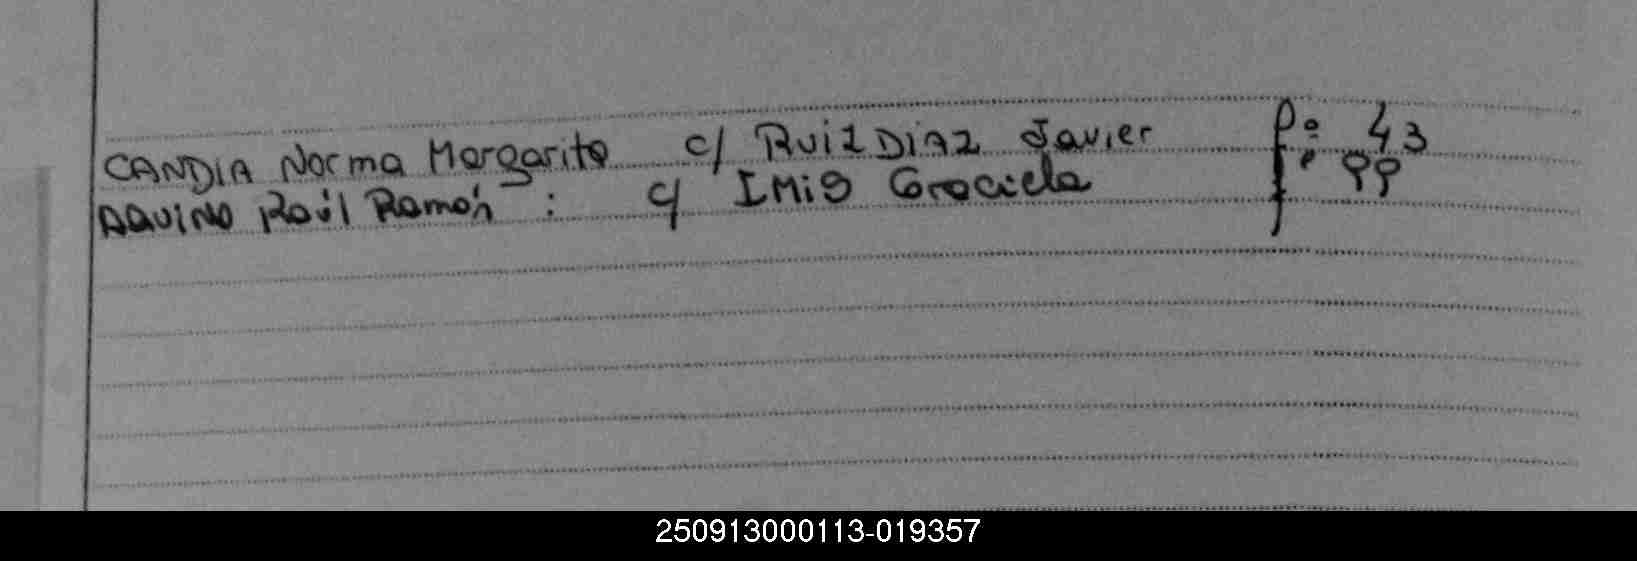 CANDIA Norma Margarita c/ RUIZ DIAZ Javier fº 43
AQUINO Raúl Ramón : c/ IMIS Graciela fº 99
250913000113-019357